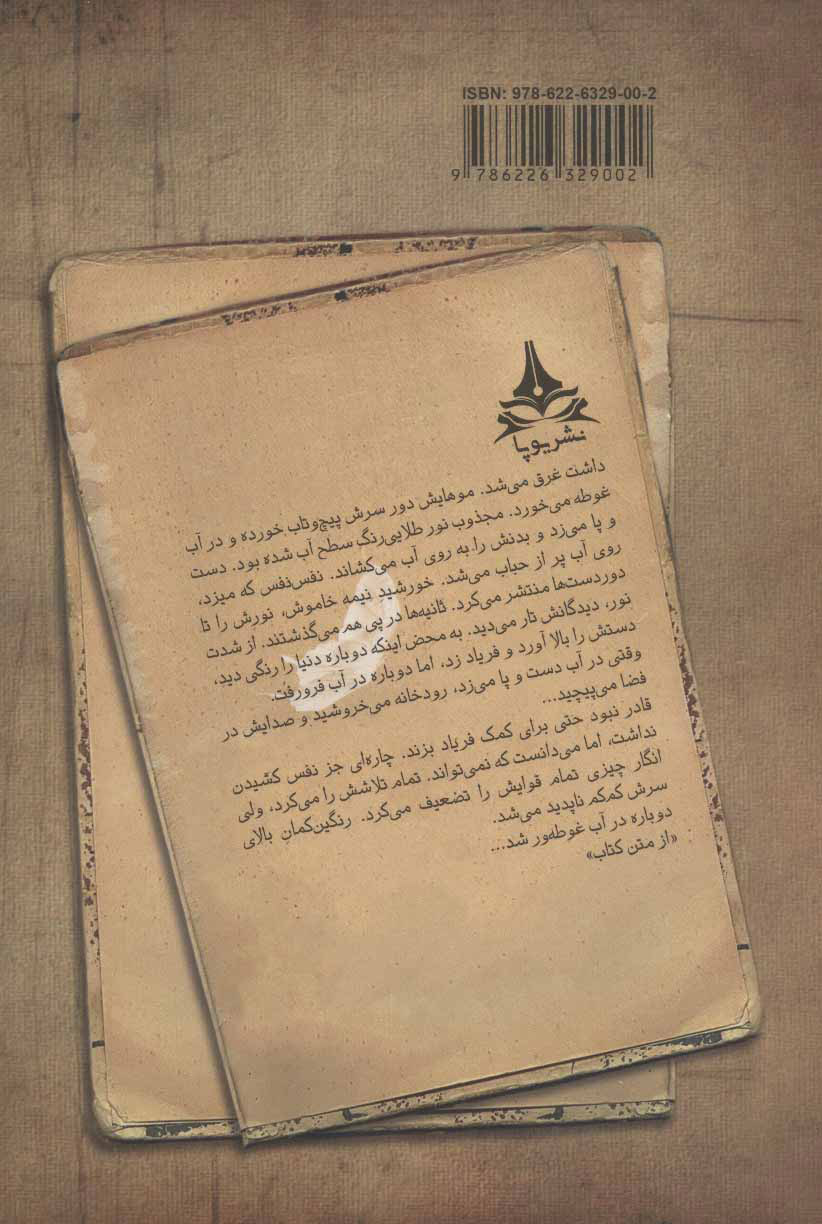 ISBN: 978-622-6329-00-2
9 786226 329002
نشر یوپا
داشت غرق می‌شد. موهایش دور سرش پیچ‌وتاب خورده و در آب
غوطه می‌خورد. مجذوب نور طلایی‌رنگ سطح آب شده بود. دست
و پا می‌زد و بدنش را به روی آب می‌کشاند. نفس‌نفس که میزد،
روی آب پر از حباب می‌شد. خورشید نیمه خاموش، نورش را تا
دوردست‌ها منتشر می‌کرد. ثانیه‌ها در پی هم می‌گذشتند. از شدت
نور، دیدگانش تار می‌دید. به محض اینکه دوباره دنیا را رنگی دید،
دستش را بالا آورد و فریاد زد، اما دوباره در آب فرورفت.
وقتی در آب دست و پا می‌زد، رودخانه می‌خروشید و صدایش در
فضا می‌پیچید...
قادر نبود حتی برای کمک فریاد بزند. چاره‌ای جز نفس کشیدن
نداشت، اما می‌دانست که نمی‌تواند. تمام تلاشش را می‌کرد، ولی
انگار چیزی تمام قوایش را تضعیف می‌کرد. رنگین‌کمان بالای
سرش کم‌کم ناپدید می‌شد.
دوباره در آب غوطه‌ور شد...
«از متن کتاب»